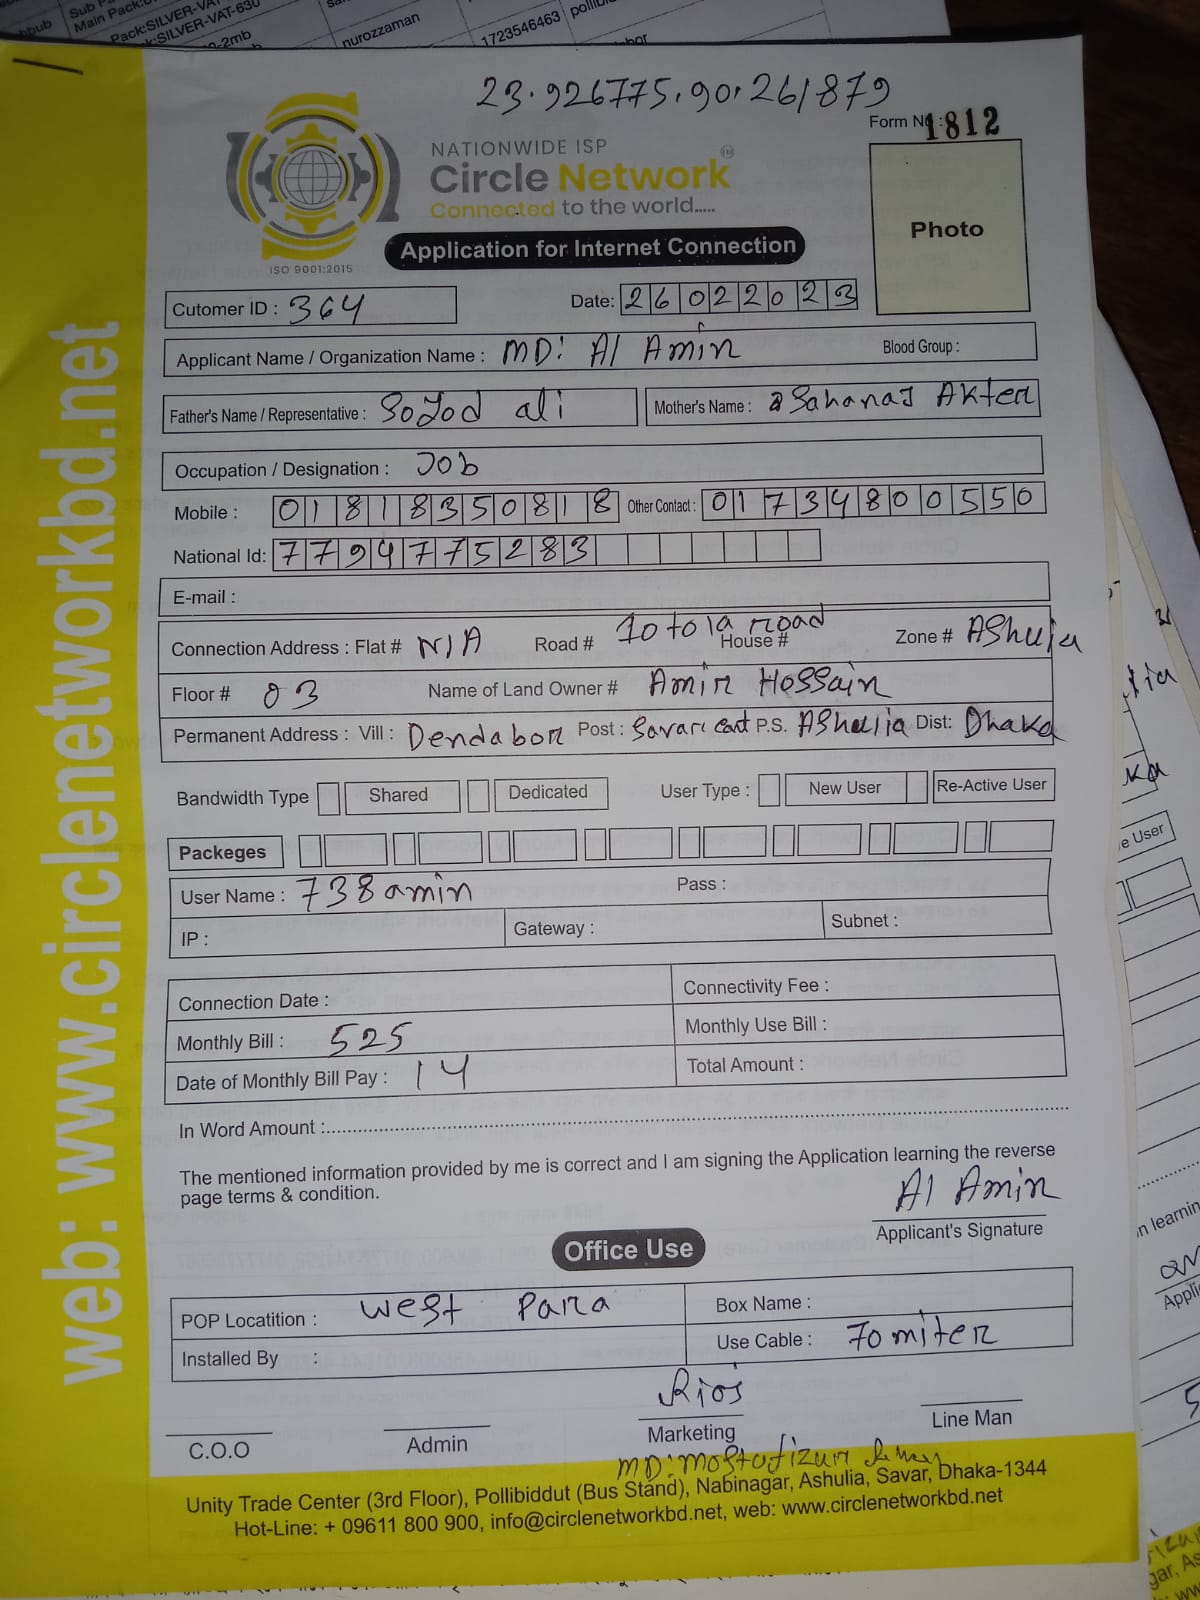 Sub
Main Pack:
Pack:SILVER-VAT
k:SILVER-VAT-630
-2mb
nurozzaman
1723546463
23.926775,90.261879
Form No : 1812
NATIONWIDE ISP
Circle Network TM
Connected to the world.....
ISO 9001:2015
Application for Internet Connection
Photo
Cutomer ID : 364
Date: 26022023
Applicant Name / Organization Name : MD: Al Amin
Blood Group :
Father's Name / Representative : SoJod ali
Mother's Name : Sahanaj Akter
Occupation / Designation : Job
Mobile : 01818350818
Other Contact : 01734800550
National Id: 7794775283
E-mail :
Connection Address : Flat # N/A Road # 10 tola road House # Zone # AShulia
Floor # 03 Name of Land Owner # Amir HoSSain
Permanent Address : Vill : Dendabor Post : Savar cant P.S. AShulia Dist: Dhaka
Bandwidth Type Shared Dedicated User Type : New User Re-Active User
Packeges
User Name : 738amin Pass :
IP : Gateway : Subnet :
Connection Date : Connectivity Fee :
Monthly Bill : 525 Monthly Use Bill :
Date of Monthly Bill Pay : 14 Total Amount :
In Word Amount :
The mentioned information provided by me is correct and I am signing the Application learning the reverse
page terms & condition.
Al Amin
Applicant's Signature
Office Use
POP Locatition : west Para Box Name :
Installed By : Use Cable : 70 miter
C.O.O Admin Marketing Line Man
MD: Mostafizur
Unity Trade Center (3rd Floor), Pollibiddut (Bus Stand), Nabinagar, Ashulia, Savar, Dhaka-1344
Hot-Line: + 09611 800 900, info@circlenetworkbd.net, web: www.circlenetworkbd.net
web: www.circlenetworkbd.net
e User
n learnin